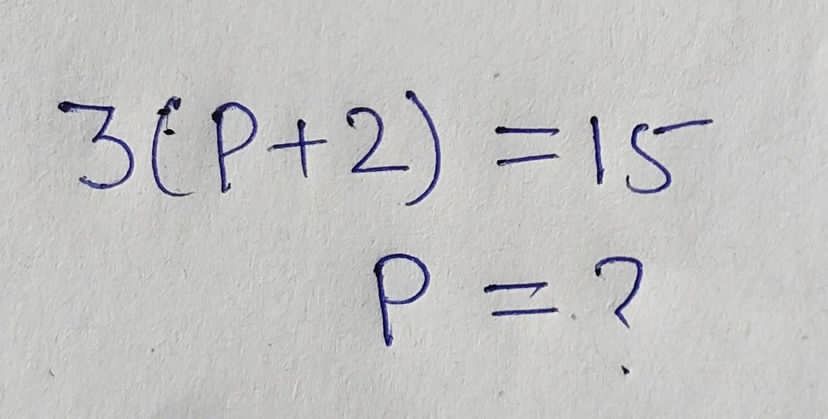 3(P+2) = 15
P = ?